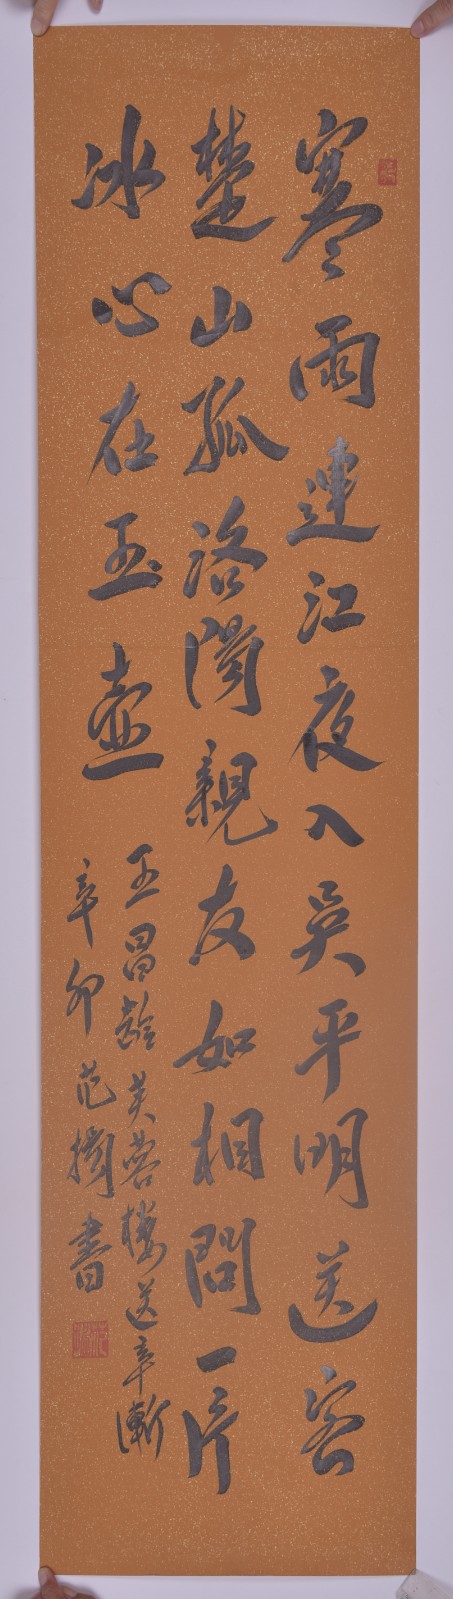 寒雨連江夜入吳平明送客
楚山孤洛陽親友如相問一片
冰心在玉壺
王昌齡芙蓉樓送辛漸
辛卯范擕書